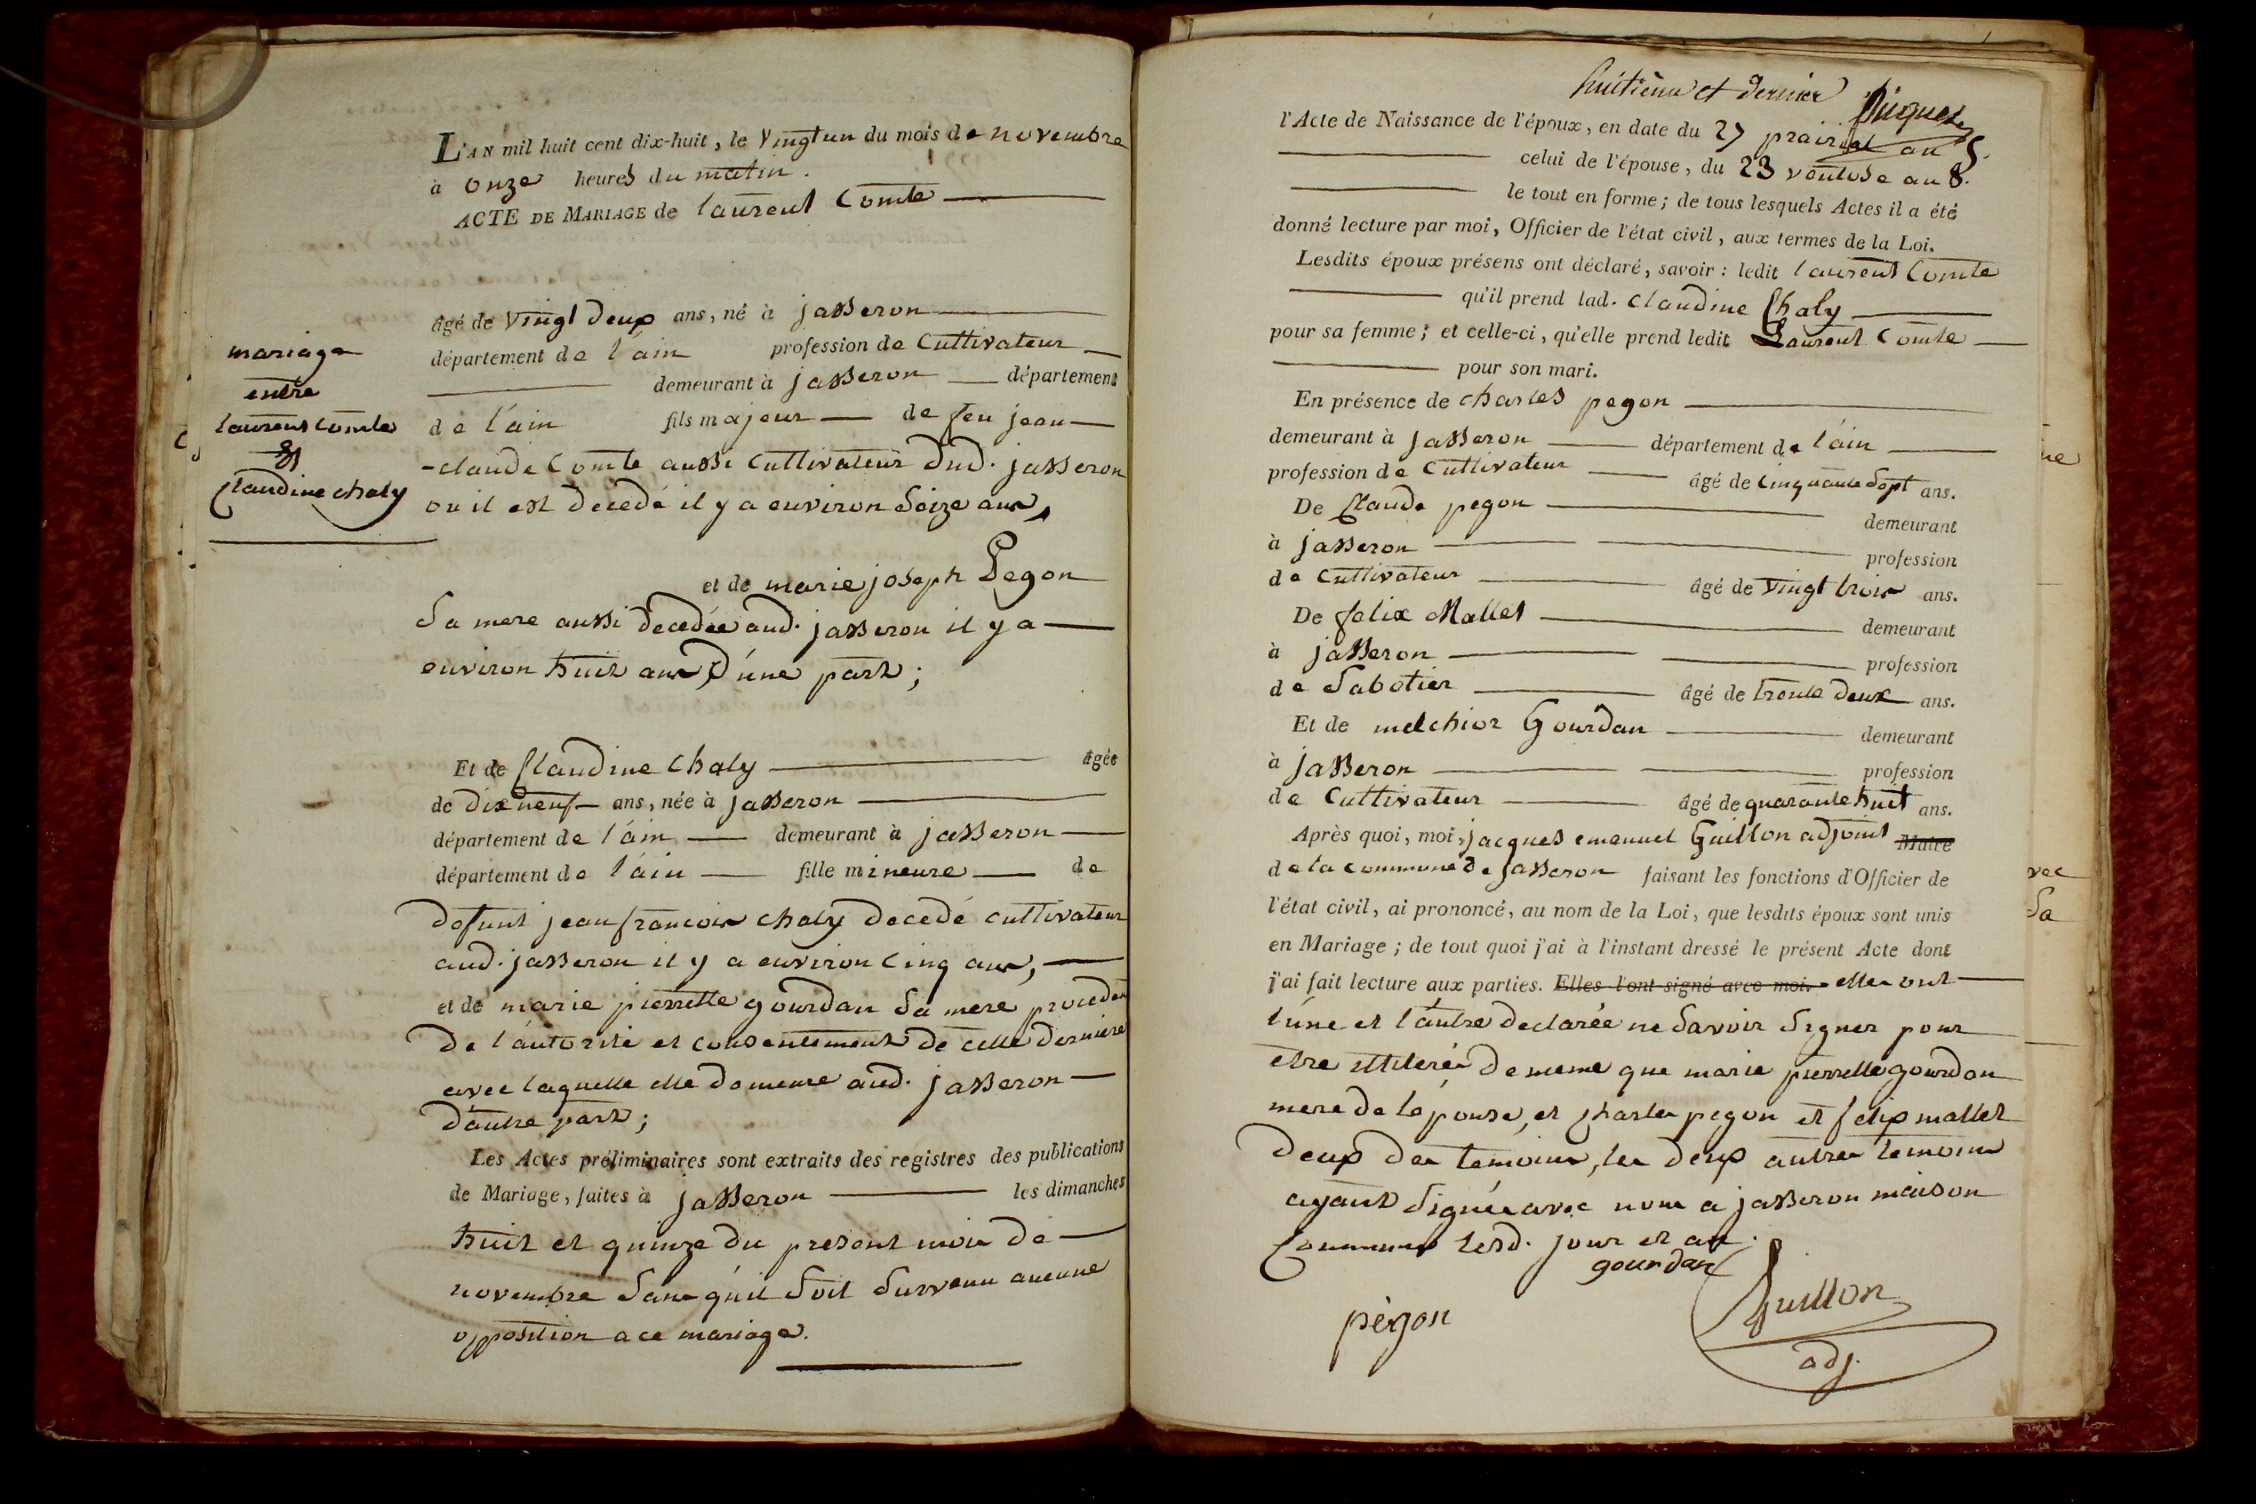 L'AN mil huit cent dix-huit, le vingt un du mois de novembre
à onze heures du matin.
ACTE DE MARIAGE de laurent Comte
âgé de vingt deux ans, né à jasseron
département de l'ain profession de Cultivateur
demeurant à jasseron département
de l'ain fils majeur de feu jean
-claude Comte aussi Cultivateur dud. jasseron
ou il est décédé il y a environ seize ans,
et de marie joseph Pegon
sa mere aussi decedée aud. jasseron il y a
environ huit ans, d'une part;
mariage
entre
laurent Comte
et
Claudine chaly
Et de Claudine Chaly âgée
de dix neuf ans, née à jasseron
département de l'ain demeurant à jasseron
département de l'ain fille mineure de
defunt jean francois chaly decedé cultivateur
aud. jasseron il y a environ cinq ans,
et de marie pierrette gourdan sa mere, procedan
de l'autorité et consentement de cette derniere
avec laquelle elle demeure aud. jasseron
d'autre part;
Les Actes préliminaires sont extraits des registres des publications
de Mariage, faites à jasseron les dimanches
huit et quinze du present mois de
novembre sans qu'il soit survenu aucune
opposition a ce mariage.
huitieme et dernier
l'Acte de Naissance de l'époux, en date du 27 prairial an 5.
celui de l'épouse, du 23 ventose an 8.
le tout en forme; de tous lesquels Actes il a été
donné lecture par moi, Officier de l'état civil, aux termes de la Loi.
Lesdits époux présens ont déclaré, savoir: ledit laurent Comte
qu'il prend lad. claudine Chaly
pour sa femme; et celle-ci, qu'elle prend ledit Laurent Comte
pour son mari.
En présence de charles pegon
demeurant à jasseron département de l'ain
profession de Cultivateur âgé de cinquante sept ans.
De Claude pegon demeurant
à jasseron profession
de Cultivateur âgé de vingt trois ans.
De felix Mallet demeurant
à jasseron profession
de Sabotier âgé de trente deux ans.
Et de melchior Gourdan demeurant
à jasseron profession
de Cultivateur âgé de quarante huit ans.
Après quoi, moi, jacques emanuel Guillon adjoint Maire
de la commune de jasseron faisant les fonctions d'Officier de
l'état civil, ai prononcé, au nom de la Loi, que lesdits époux sont unis
en Mariage; de tout quoi j'ai à l'instant dressé le présent Acte dont
j'ai fait lecture aux parties. Elles l'ont signé avec moi. elles ont
l'une et l'autre declarée ne savoir signer pour
etre illiterés de meme que marie pierrette gourdan
mere de l'epouse, et charles pegon et felix mallet
deux des temoins, les deux autres temoins
ayant signés avec nous a jasseron maison
Commune lesd. jour et an.
gourdan
pégon
Guillon
adj.